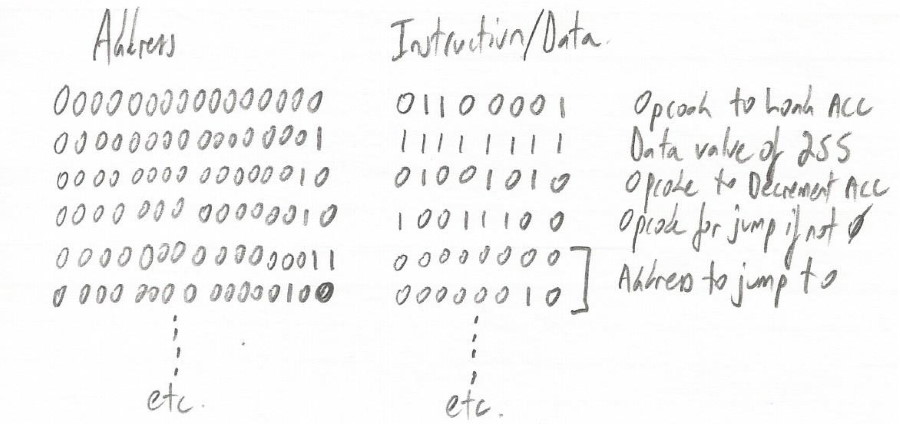 Address Instruction/Data.
0000000000000000 01100001 Opcode to Load ACC
0000000000000001 11111111 Data value of 255
0000000000000010 01001010 Opcode to Decrement ACC
000000000000010 10011100 Opcode for jump if not 0
0000000000000011 00000000 Address to jump to
0000000000000100 00000010
etc. etc.